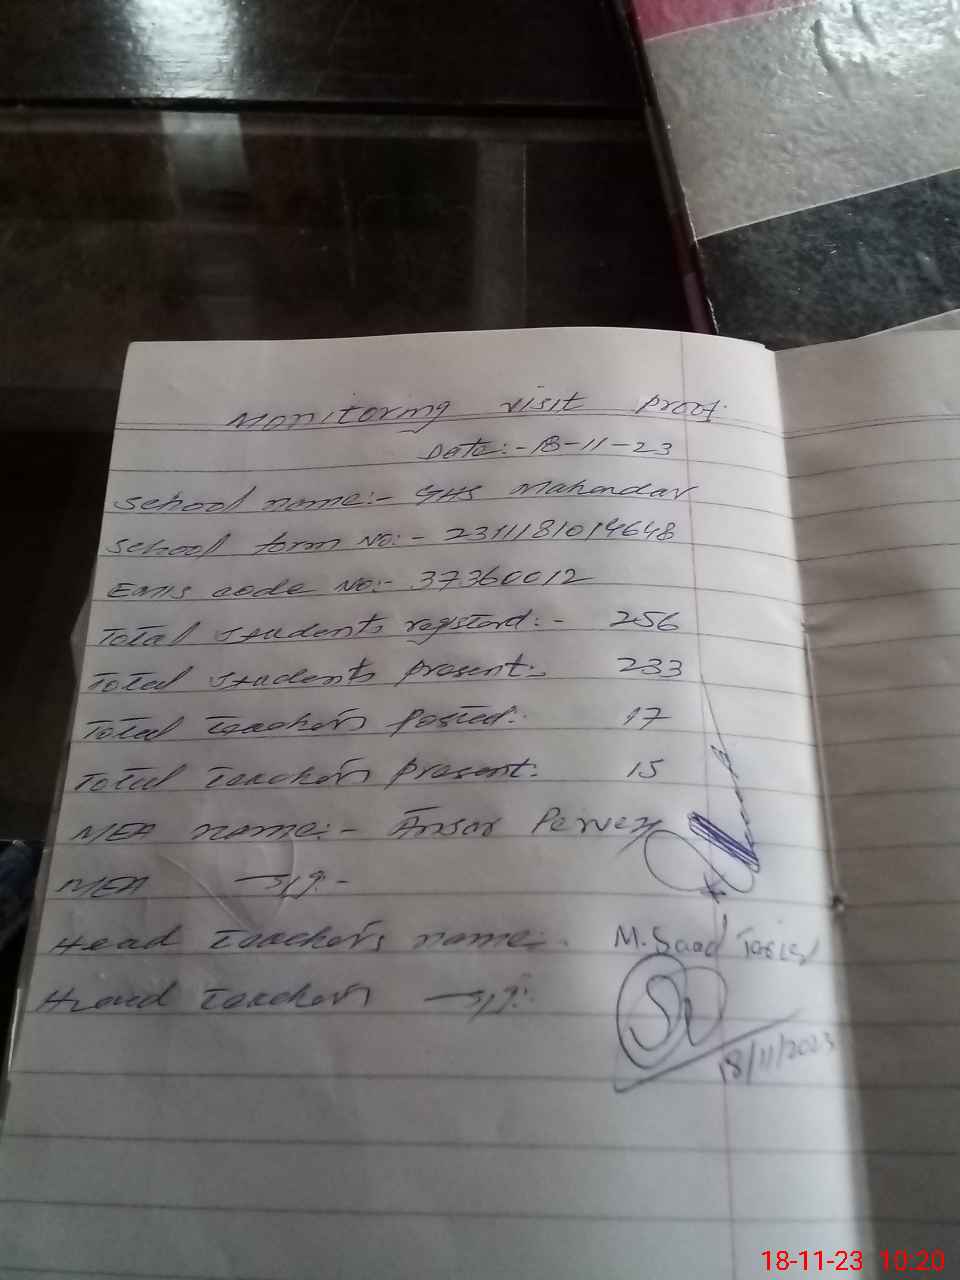 Monitoring visit proof.
Date:- 18-11-23
School name:- GHS Mahandar
School form No:- 2311181014648
EMIS code No:- 37360012
Total students registerd:- 256
Total students present:- 233
Total teachers Posted:- 17
Total teachers present:- 15
MEA name:- Ansar Pervez
MEA sig:-
Head teachers name:- M. Saad
Head teachers sig:-
18/11/2023
18-11-23 10:20